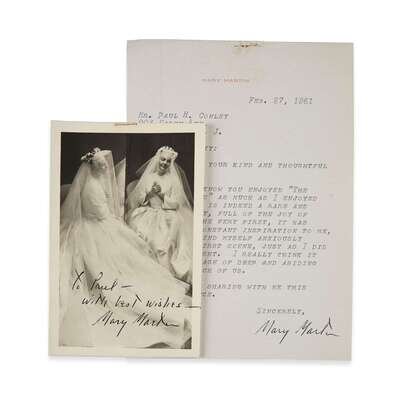 MARY MARTIN
FEB. 27, 1961
MR. PAUL H. CONLEY
J.
YOUR KIND AND THOUGHTFUL
KNOW YOU ENJOYED "THE
AS MUCH AS I ENJOYED
IS INDEED A RARE AND
, FULL OF THE JOY OF
THE VERY FIRST, IT HAS
CONSTANT INSPIRATION TO ME,
FIND MYSELF ANXIOUSLY
FIRST SCENE, JUST AS I DID
I REALLY THINK IT
OF DEEP AND ABIDING
OF US.
SHARING WITH ME THIS
SINCERELY,
Mary Martin
To Paul –
with best wishes –
Mary Martin